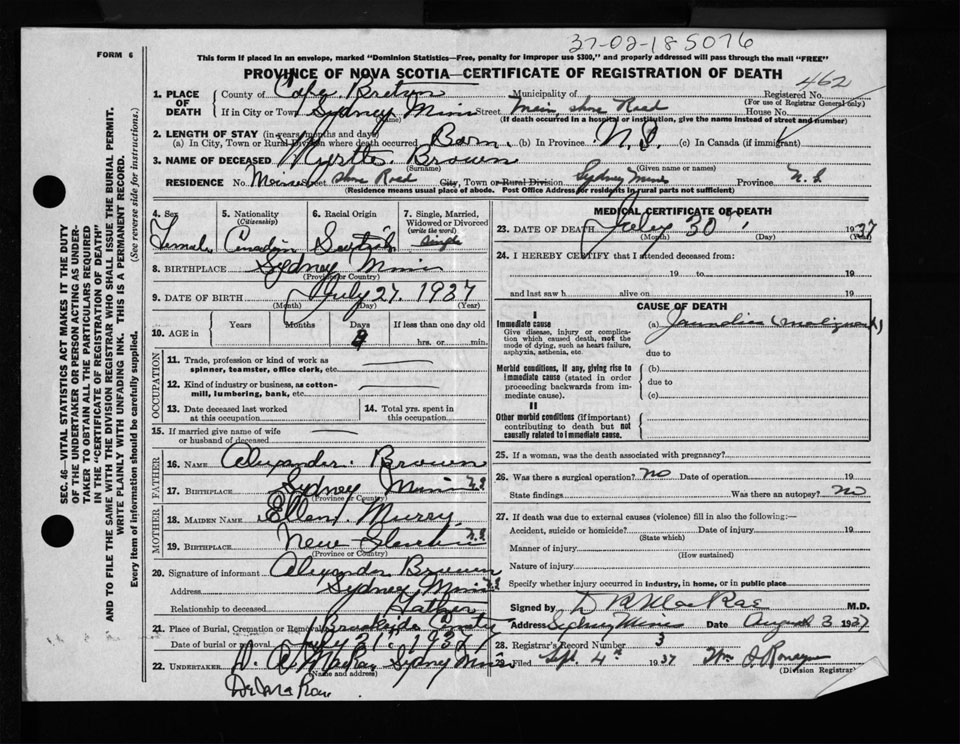 37-02-185076
FORM 6
This form if placed in an envelope, marked "Dominion Statistics—Free, penalty for improper use $300," and properly addressed will pass through the mail "FREE"
PROVINCE OF NOVA SCOTIA—CERTIFICATE OF REGISTRATION OF DEATH
462
SEC. 46—VITAL STATISTICS ACT MAKES IT THE DUTY
OF THE UNDERTAKER OR PERSON ACTING AS UNDER-
TAKER TO OBTAIN ALL THE PARTICULARS REQUIRED
IN THE "CERTIFICATE OF REGISTRATION OF DEATH"
AND TO FILE THE SAME WITH THE DIVISION REGISTRAR WHO SHALL ISSUE THE BURIAL PERMIT.
WRITE PLAINLY WITH UNFADING INK. THIS IS A PERMANENT RECORD.
Every item of information should be carefully supplied. (See reverse side for instructions.)
1. PLACE OF DEATH
County of Cape Breton Municipality of Registered No.
(For use of Registrar General only.)
If in City or Town Sydney Mines Street Main Shore Road House No.
(Name) (If death occurred in a hospital or institution, give the name instead of street and number)
2. LENGTH OF STAY (in years, months and days)
(a) In City, Town or Rural Division where death occurred Born. (b) In Province N.S. (c) In Canada (if immigrant)
3. NAME OF DECEASED Myrtle Brown
(Surname) (Given name or names)
RESIDENCE No. Street Shore Road City, Town or Rural Division Sydney Mines Province N.S.
(Residence means usual place of abode. Post Office Address for residents in rural parts not sufficient)
4. Sex
Female
5. Nationality
(Citizenship)
Canadian
6. Racial Origin
Scotish
7. Single, Married,
Widowed or Divorced
(write the word)
Single
8. BIRTHPLACE Sydney Mines
(Province or Country)
9. DATE OF BIRTH July 27, 1937
(Month) (Day) (Year)
10. AGE in
Years Months Days If less than one day old
hrs. or min.
OCCUPATION
11. Trade, profession or kind of work as
spinner, teamster, office clerk, etc.
12. Kind of industry or business, as cotton-
mill, lumbering, bank, etc.
13. Date deceased last worked
at this occupation
14. Total yrs. spent in
this occupation
15. If married give name of wife
or husband of deceased
FATHER
16. NAME Alexander Brown
17. BIRTHPLACE Sydney Mines N.S.
(Province or Country)
MOTHER
18. MAIDEN NAME Ellen Murry
19. BIRTHPLACE New N.S.
(Province or Country)
20. Signature of informant Alexander Brown
Address Sydney Mines N.S.
Relationship to deceased Father
21. Place of Burial, Cremation or Removal Brookside
Date of burial or removal July 31, 1937
22. UNDERTAKER Sydney Mines
(Name and address)
MEDICAL CERTIFICATE OF DEATH
23. DATE OF DEATH July 30 1937
(Month) (Day) (Year)
24. I HEREBY CERTIFY that I attended deceased from:
19 to 19
and last saw h alive on 19
CAUSE OF DEATH
I
Immediate cause
Give disease, injury or complica-
tion which caused death, not the
mode of dying, such as heart failure,
asphyxia, asthenia, etc.
(a) Jaundice (malignant)
due to
Morbid conditions, if any, giving rise to
immediate cause (stated in order
proceeding backwards from im-
mediate cause).
(b)
due to
(c)
II
Other morbid conditions (if important)
contributing to death but not
causally related to immediate cause.
25. If a woman, was the death associated with pregnancy?
26. Was there a surgical operation? no Date of operation 19
State findings Was there an autopsy? no
27. If death was due to external causes (violence) fill in also the following:—
Accident, suicide or homicide? Date of injury 19
(State which)
Manner of injury
(How sustained)
Nature of injury
Specify whether injury occurred in industry, in home, or in public place
Signed by D R MacRae M.D.
Address Sydney Mines Date August 3 1937
28. Registrar's Record Number 3
29. Filed Sept. 4th 1937 Wm
(Division Registrar)